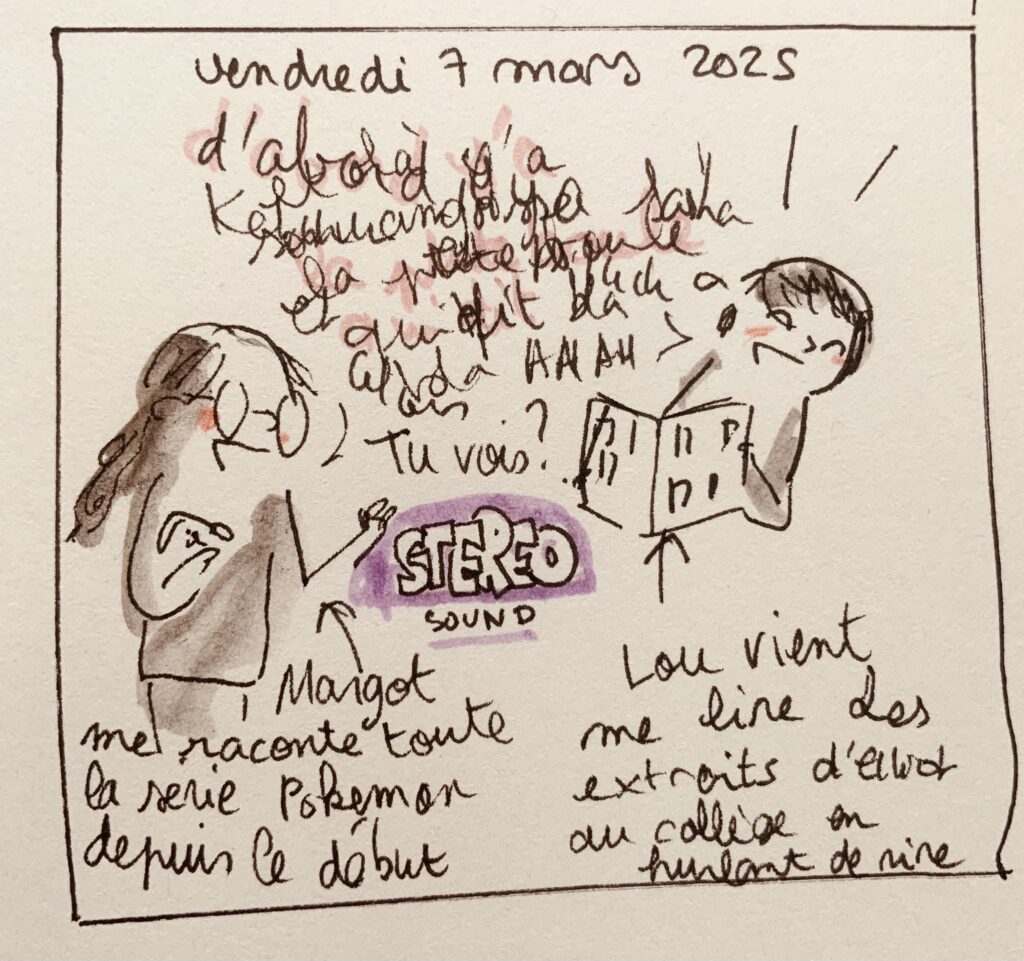 vendredi 7 mars 2025
d'abord y'a
Sacha
la
qui dit
a
HAHAH
Tu vois?
STEREO
SOUND
Margot
me raconte toute
la série Pokémon
depuis le début
Lou vient
me lire des
extraits d'Elliot
au collège en
hurlant de rire